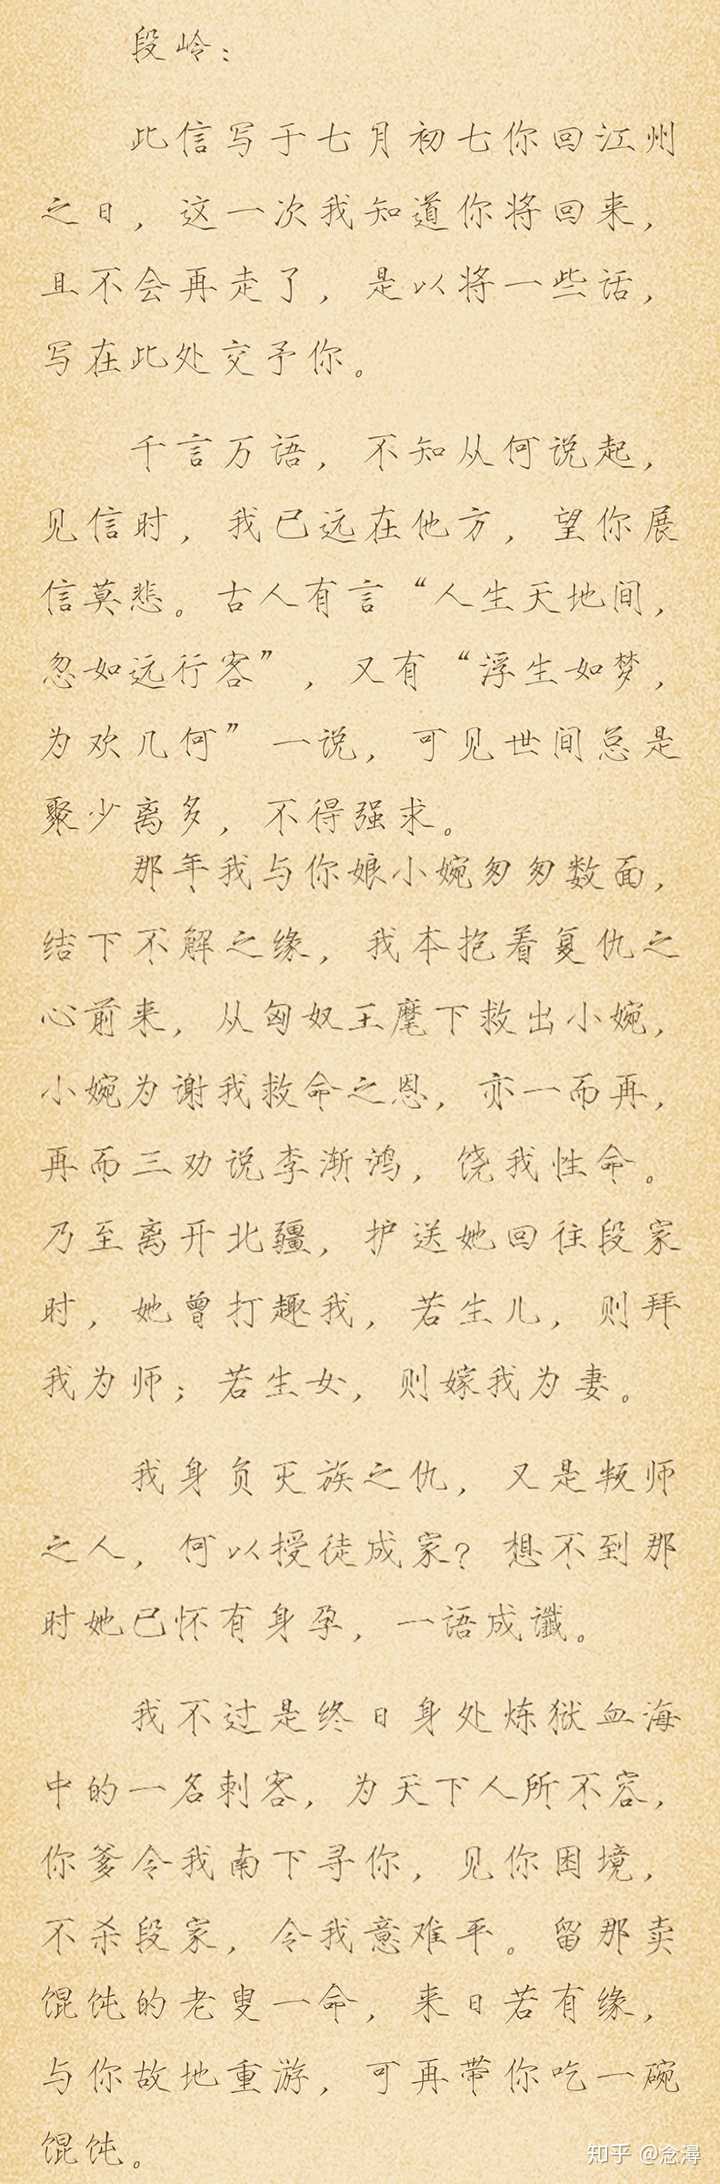 段岭：
此信写于七月初七你回江州
之日，这一次我知道你将回来，
且不会再走了，是以将一些话，
写在此处交予你。
千言万语，不知从何说起，
见信时，我已远在他方，望你展
信莫悲。古人有言“人生天地间，
忽如远行客”，又有“浮生如梦，
为欢几何”一说，可见世间总是
聚少离多，不得强求。
那年我与你娘小婉匆匆数面，
结下不解之缘，我本抱着复仇之
心前来，从匈奴王麾下救出小婉，
小婉为谢我救命之恩，亦一而再，
再而三劝说李渐鸿，饶我性命。
乃至离开北疆，护送她回往段家
时，她曾打趣我，若生儿，则拜
我为师；若生女，则嫁我为妻。
我身负灭族之仇，又是叛师
之人，何以授徒成家？想不到那
时她已怀有身孕，一语成谶。
我不过是终日身处炼狱血海
中的一名刺客，为天下人所不容，
你爹令我南下寻你，见你困境，
不杀段家，令我意难平。留那卖
馄饨的老叟一命，来日若有缘，
与你故地重游，可再带你吃一碗
馄饨。
知乎 @念潯